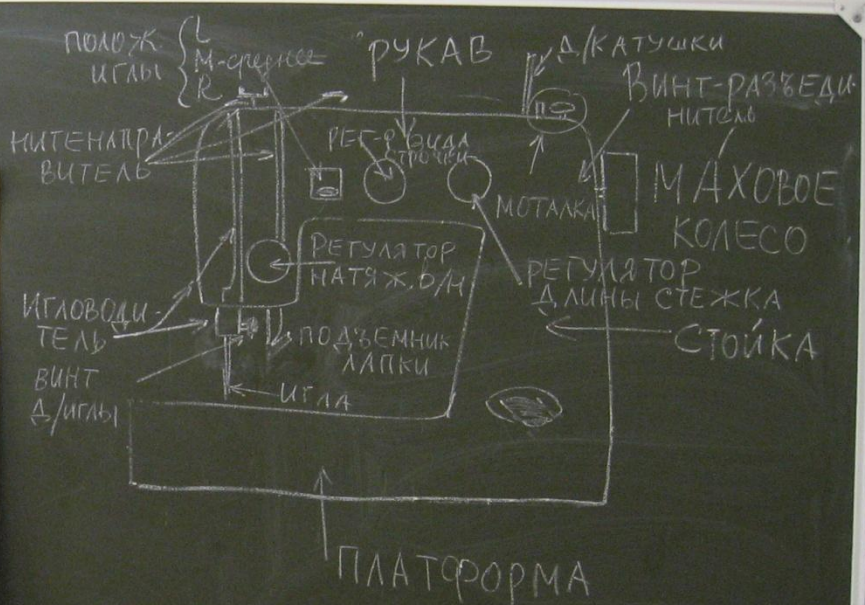 ПОЛОЖ.
ИГЛЫ
L
М-среднее
R
РУКАВ
Д/КАТУШКИ
ВИНТ-РАЗЪЕДИ-
НИТЕЛЬ
НИТЕНАПРА-
ВИТЕЛЬ
РЕГ-Р ВИДА
СТРОЧКИ
МОТАЛКА
МАХОВОЕ
КОЛЕСО
РЕГУЛЯТОР
НАТЯЖ. В/Н
РЕГУЛЯТОР
ДЛИНЫ СТЕЖКА
ИГЛОВОДИ-
ТЕЛЬ
ПОДЪЕМНИК
ЛАПКИ
СТОЙКА
ВИНТ
Д/ИГЛЫ
ИГЛА
ПЛАТФОРМА